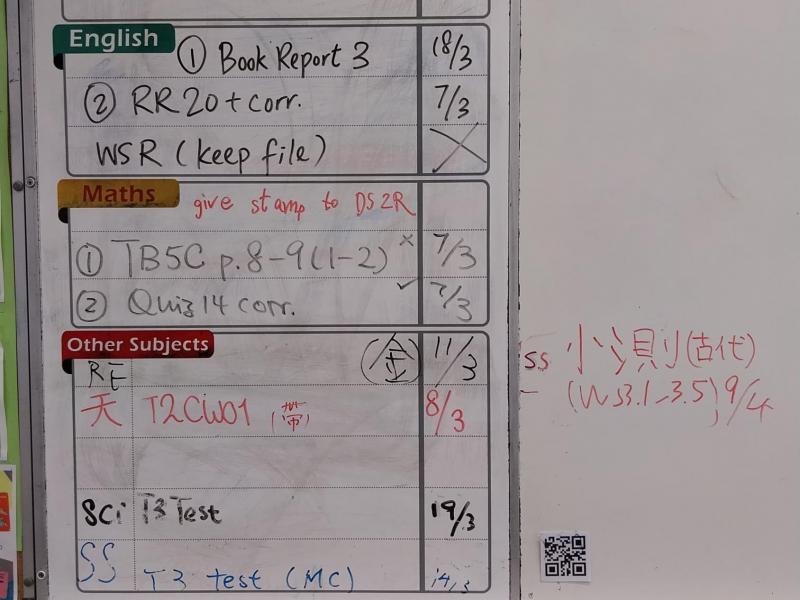 English
① Book Report 3 18/3
② RR20 + corr. 7/3
WSR (keep file) ×
Maths
give stamp to DS2R
① TB5C p.8-9 (1-2) × 7/3
② Quiz 14 corr. ✓ 7/3
Other Subjects
RE (金) 11/3
天 T2CW01 (帶) 8/3
Sci T3 Test 19/3
SS T3 test (MC) 14/3
SS 小測 (古代)
(Ws3.1, 3.5) 9/4